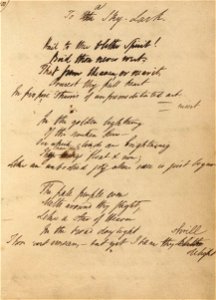 To a Sky-Lark
Hail to thee blithe Spirit!
Bird thou never wert
That from Heaven or near it,
Pourest thy full heart
In profuse strains of unpremeditated art.
In the golden lightning
Of the sunken Sun
clouds are brightning
float & run;
Like an unbodied joy whose race is just begun
The pale purple even
Melts around thy flight,
Like a star of Heaven
In the broad daylight
Thou art unseen — but yet I hear thy
shrill
delight